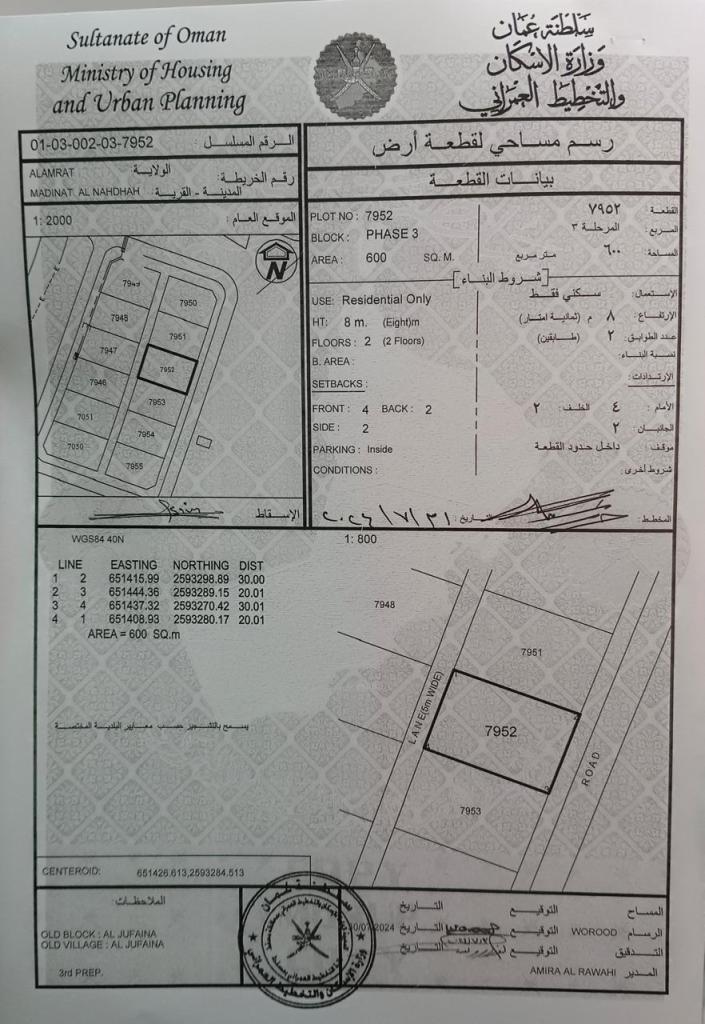 Sultanate of Oman
Ministry of Housing
and Urban Planning
سلطنة عمان
وزارة الإسكان
والتخطيط العمراني
01-03-002-03-7952 الرقم المسلسل :
ALAMRAT الولاية: رقم الخريطة:
MADINAT AL NAHDHAH المدينة - القرية:
1: 2000 الموقع العام:
7949
7950
7948
7951
7947
7952
7946
7953
7051
7954
7050
7955
N
الإسقاط
رسم مساحي لقطعة أرض
بيانات القطعة
PLOT NO : 7952 القطعة: ٧٩٥٢
BLOCK : PHASE 3 المربع: المرحلة ٣
AREA : 600 SQ. M. المساحة: ٦٠٠ متر مربع
شروط البناء
USE: Residential Only الإستعمال: سكني فقط
HT: 8 m. (Eight)m الإرتفاع: ٨ م (ثمانية امتار)
FLOORS : 2 (2 Floors) عدد الطوابق: ٢ (طابقين)
B. AREA : نسبة البناء:
SETBACKS : الإرتدادات:
FRONT : 4 BACK : 2 الأمام: ٤ الخلف: ٢
SIDE : 2 الجانبان: ٢
PARKING : Inside موقف: داخل حدود القطعة
CONDITIONS : شروط أخرى:
المخطط: التاريخ: ٢٠٢٤/٧/٣١
WGS84 40N
1: 800
LINE EASTING NORTHING DIST
1 2 651415.99 2593298.89 30.00
2 3 651444.36 2593289.15 20.01
3 4 651437.32 2593270.42 30.01
4 1 651408.93 2593280.17 20.01
AREA = 600 SQ.m
7948
7951
LANE(5m WIDE)
7952
ROAD
7953
يسمح بالتشجير حسب معايير البلدية المختصة
CENTEROID: 651426.613,2593284.513
الملاحظات:
OLD BLOCK : AL JUFAINA
OLD VILLAGE : AL JUFAINA
3rd PREP.
المساح التوقيع التاريخ
الرسام WOROOD التوقيع التاريخ 30/07/2024
التدقيق التوقيع التاريخ
المدير AMIRA AL RAWAHI